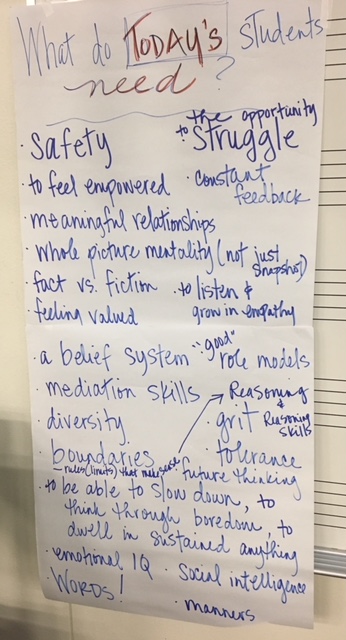 What do TODAY's students
need?
· Safety
· the opportunity
to struggle
· to feel empowered
· constant
feedback
· meaningful relationships
· whole picture mentality (not just
snapshot)
· fact vs. fiction
· to listen &
grow in empathy
· feeling valued
· a belief system
· "good"
role models
· mediation skills
Reasoning
&
· grit
Reasoning
skills
· diversity
· boundaries
- rules (limits) that make sense
· tolerance
· future thinking
· to be able to slow down, to
think through boredom, to
dwell in sustained anything
· emotional IQ
· Social intelligence
· WORDS!
· manners